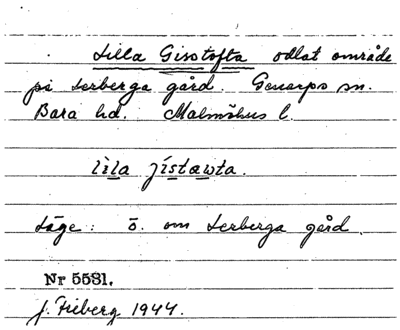 Lilla Gisstofta odlat område
på Lerberga gård. Genarps sn.
Bara hd. Malmöhus l.
lìla jístawta.
Läge: ö. om Lerberga gård.
Nr 5581.
J. Friberg 1944.